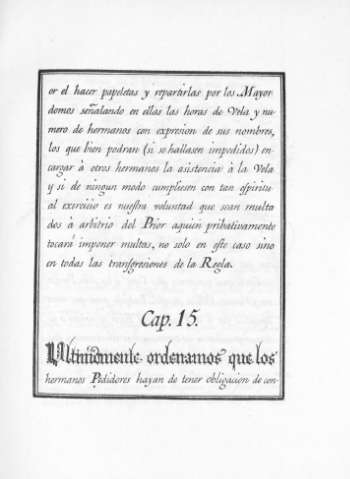 or el hacer papeletas y repartirlas por los Mayor
domos señalando en ellas las horas de Vela y nu-
mero de hermanos con expresion de sus nombres,
los que bien podran (si se hallasen impedidos) en-
cargar à otros hermanos la asistencia à la Vela
y si de ningun modo cumpliesen con tan espiritu
al exercicio es nuestra voluntad que sean multa
dos à arbitrio del Prior aquien pribativamente
tocarà imponer multas, no solo en este caso sino
en todas las transgresiones de la Regla.
Cap. 15.
Ultimamente ordenamos que los
hermanos Pedidores hayan de tener obligacion de con-